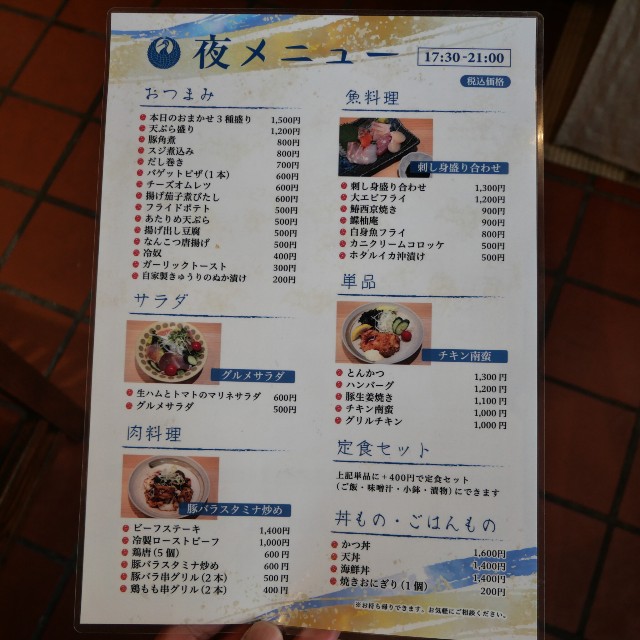 夜メニュー
17:30-21:00
税込価格
おつまみ
本日のおまかせ3種盛り 1,500円
天ぷら盛り 1,200円
豚角煮 800円
スジ煮込み 800円
だし巻き 700円
バゲットピザ(1本) 600円
チーズオムレツ 600円
揚げ茄子煮びたし 600円
フライドポテト 500円
あたりめ天ぷら 500円
揚げ出し豆腐 500円
なんこつ唐揚げ 500円
冷奴 400円
ガーリックトースト 300円
自家製きゅうりのぬか漬け 200円
サラダ
グルメサラダ
生ハムとトマトのマリネサラダ 600円
グルメサラダ 500円
肉料理
豚バラスタミナ炒め
ビーフステーキ 1,400円
冷製ローストビーフ 1,000円
鶏唐(5個) 600円
豚バラスタミナ炒め 600円
豚バラ串グリル(2本) 500円
鶏もも串グリル(2本) 400円
魚料理
刺し身盛り合わせ
刺し身盛り合わせ 1,300円
大エビフライ 1,200円
鰆西京焼き 900円
鰈柚庵 900円
白身魚フライ 800円
カニクリームコロッケ 500円
ホタルイカ沖漬け 500円
単品
チキン南蛮
とんかつ 1,300円
ハンバーグ 1,200円
豚生姜焼き 1,100円
チキン南蛮 1,000円
グリルチキン 1,000円
定食セット
上記単品に+400円で定食セット
(ご飯・味噌汁・小鉢・漬物)にできます
丼もの・ごはんもの
かつ丼 1,600円
天丼 1,400円
海鮮丼 1,400円
焼きおにぎり(1個) 200円
※お持ち帰りできます。お気軽にご相談ください。